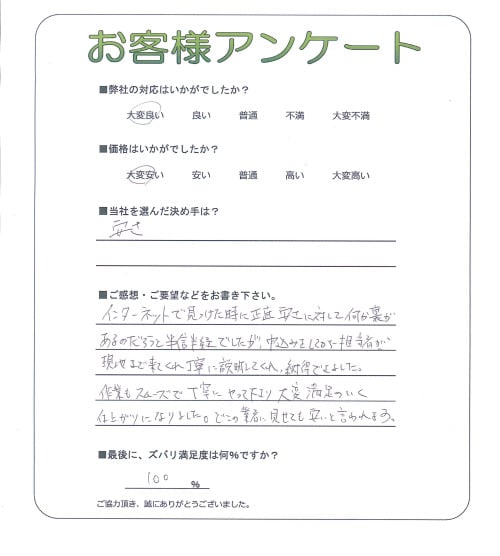 お客様アンケート
■弊社の対応はいかがでしたか？
大変良い 良い 普通 不満 大変不満
■価格はいかがでしたか？
大変安い 安い 普通 高い 大変高い
■当社を選んだ決め手は？
安さ
■ご感想・ご要望などをお書き下さい。
インターネットで見つけた時に正直安さに対して何か裏が
あるのだろうと半信半疑でしたが、申込みをしたら担当者が
現地まで来てくれ丁寧に説明してくれ、納得できました。
作業もスムーズで丁寧にやって下さり大変満足のいく
仕上がりになりました。どこの業者に見せても安いと言われます。
■最後に、ズバリ満足度は何%ですか？
100 %
ご協力頂き、誠にありがとうございました。